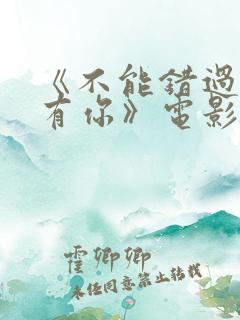 《不能错过
有你》电影
霍卿卿
未经同意禁止转载